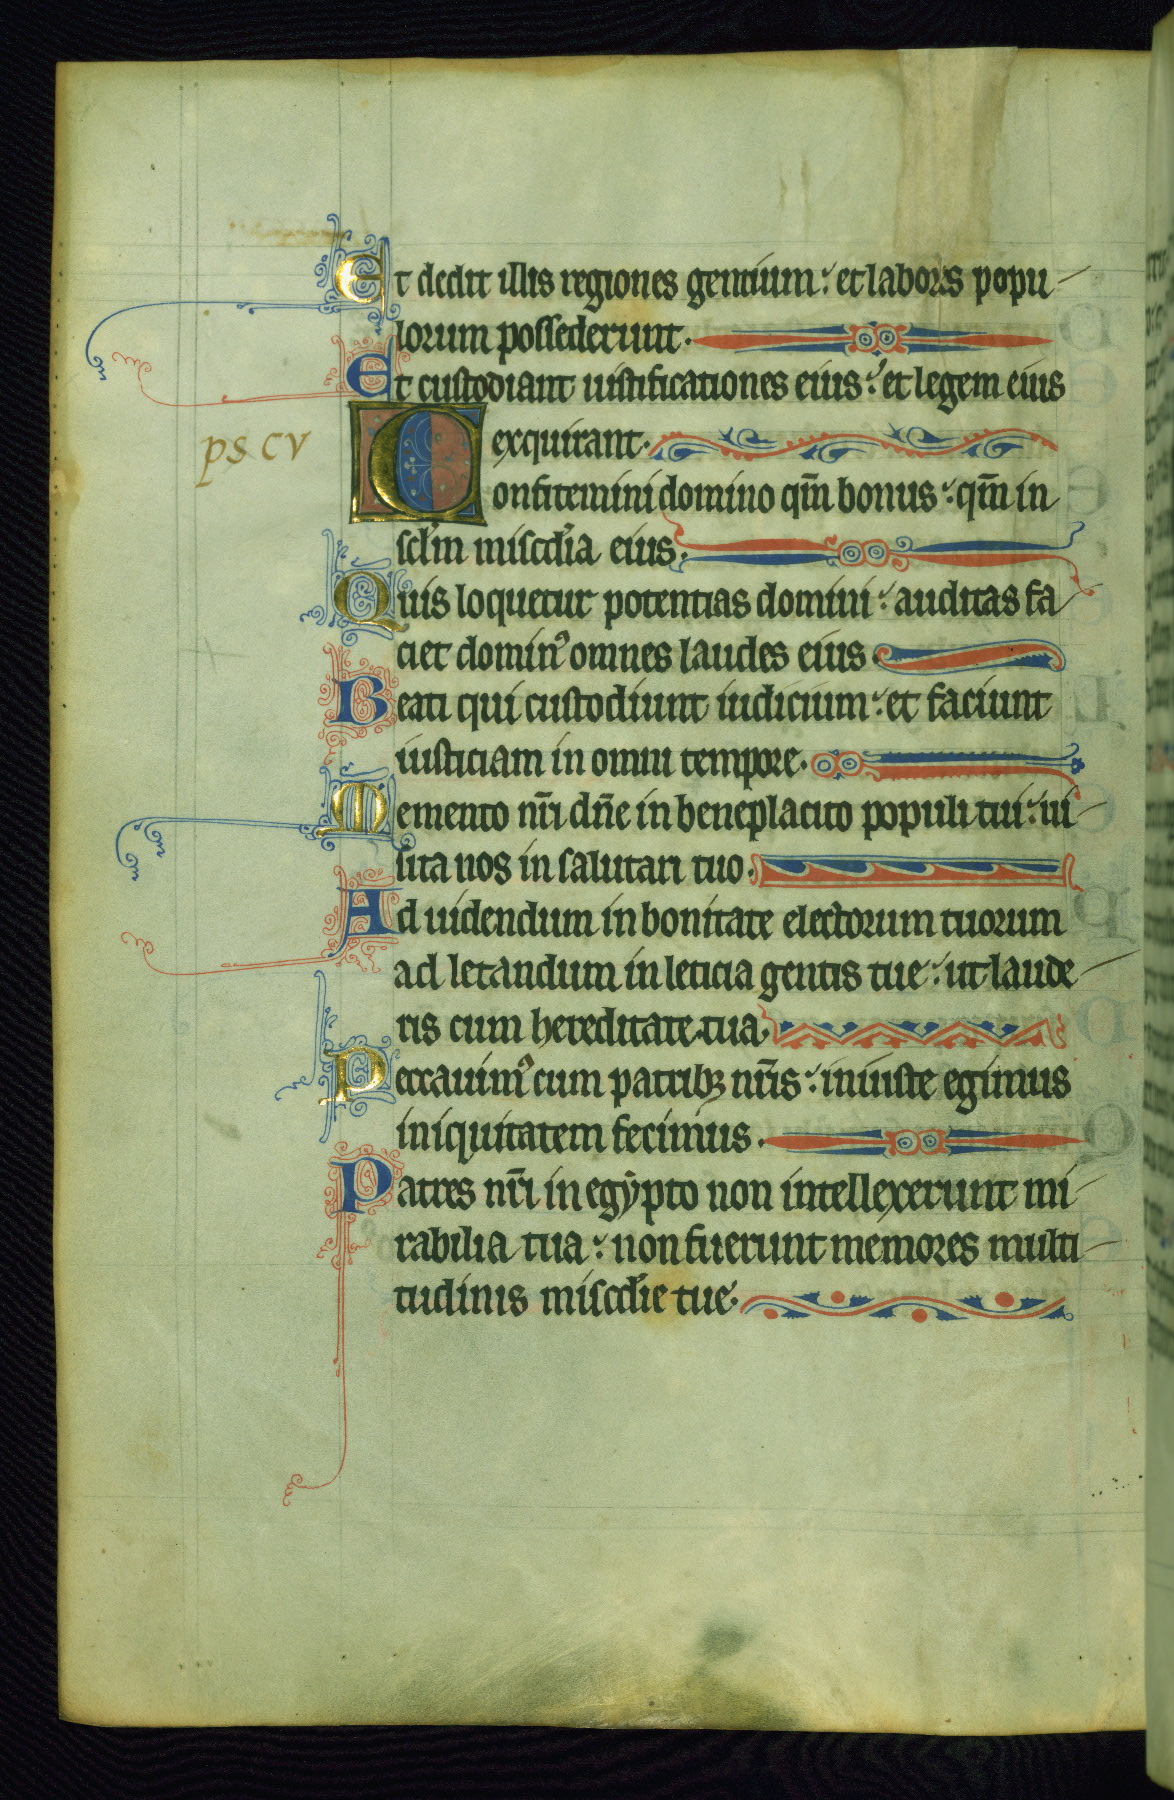 Et dedit illis regiones gentium: et labores popu
lorum possederunt.
Et custodiant iustificationes eius: et legem eius
exquirant.
ps CV
Confitemini domino qm̄ bonus: qm̄ in
sclm̄ miscdia eius.
Quis loquetur potentias domini: auditas fa
ciet dominꝰ omnes laudes eius.
Beati qui custodiunt iudicium: et faciunt
iusticiam in omni tempore.
Memento nr̄i dn̄e in beneplacito populi tui: ui
sita nos in salutari tuo.
Ad uidendum in bonitate electorum tuorum
ad letandum in leticia gentis tue: ut laude
ris cum hereditate tua.
Peccauimꝰ cum patribꝫ nr̄is: iniuste egimus
iniquitatem fecimus.
Patres nr̄i in egẏpto non intellexerunt mi
rabilia tua: non fuerunt memores multi
tudinis miscdie tue.